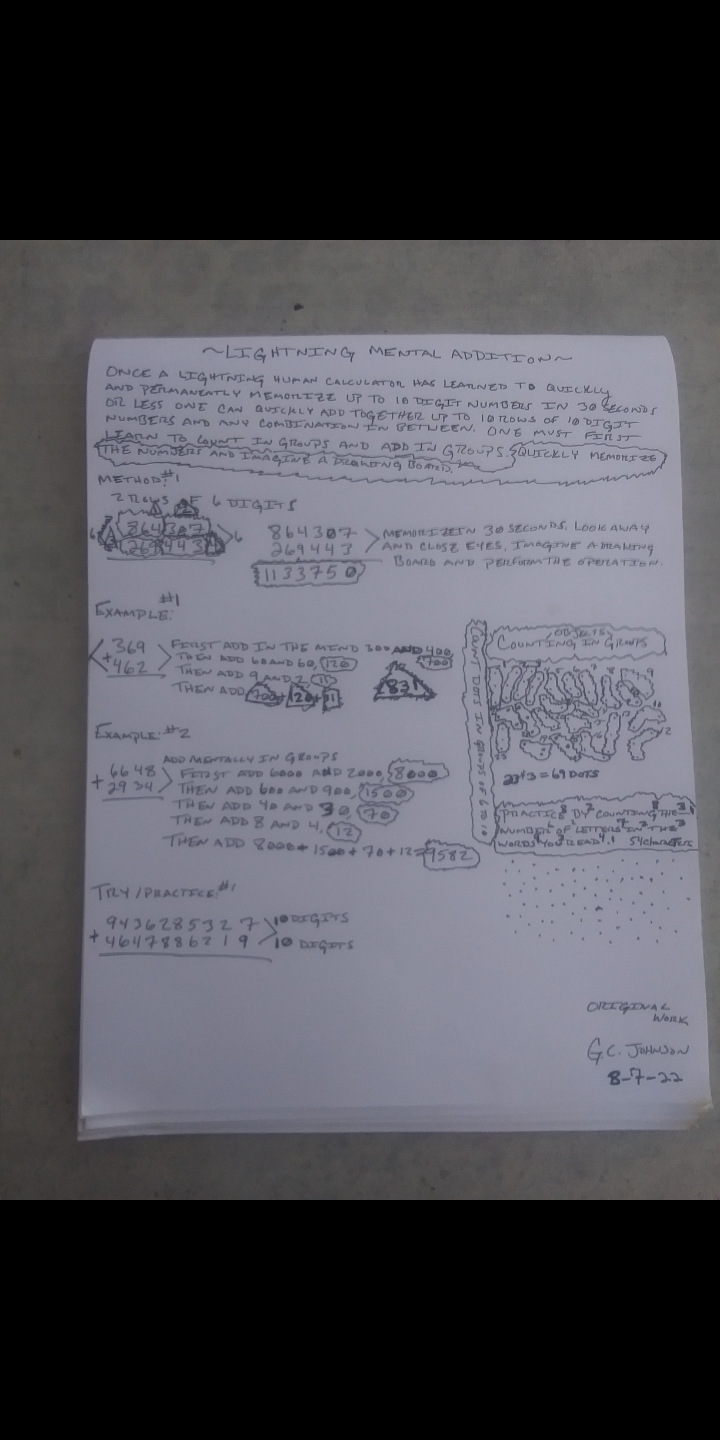 ~LIGHTNING MENTAL ADDITION~
ONCE A LIGHTNING HUMAN CALCULATOR HAS LEARNED TO QUICKLY
AND PERMANENTLY MEMORIZE UP TO 10 DIGIT NUMBERS IN 30 SECONDS
OR LESS ONE CAN QUICKLY ADD TOGETHER UP TO 10 ROWS OF 10 DIGIT
NUMBERS AND ANY COMBINATION IN BETWEEN. ONE MUST FIRST
LEARN TO COUNT IN GROUPS AND ADD IN GROUPS. QUICKLY MEMORIZE
THE NUMBERS AND IMAGINE A DRAWING BOARD.
METHOD: #1
2 ROWS OF 6 DIGITS
6 864 307
269 443 6
864307
269443
1133750
MEMORIZE IN 30 SECONDS. LOOK AWAY
AND CLOSE EYES. IMAGINE A DRAWING
BOARD AND PERFORM THE OPERATION.
EXAMPLE: #1
369
+462
FIRST ADD IN THE MIND 300 AND 400, 700
THEN ADD 60 AND 60, 120
THEN ADD 9 AND 2, 11
THEN ADD 700+120+11
831
EXAMPLE: #2
ADD MENTALLY IN GROUPS
6648
+2934
FIRST ADD 6000 AND 2000, 8000
THEN ADD 600 AND 900, 1500
THEN ADD 40 AND 30, 70
THEN ADD 8 AND 4, 12
THEN ADD 8000+1500+70+12=9582
COUNT DOTS IN GROUPS OF 6 TO 10
OBJECTS
COUNTING IN GROUPS
=69 DOTS
PRACTICE BY COUNTING THE
NUMBER OF LETTERS IN THE
WORDS YOU READ.
TRY/PRACTICE: #1
9436285327 10 DIGITS
+4647886219 10 DIGITS
ORIGINAL
WORK
G.C. JOHNSON
8-7-22